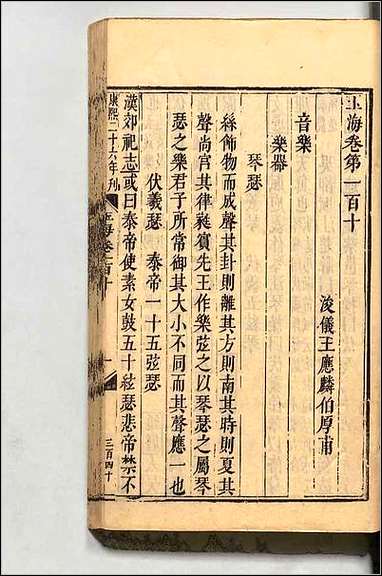 玉海卷第一百十
浚儀王應麟伯厚甫
音樂
樂器
琴瑟
絲飾物而成聲其卦則離其方則南其時則夏其
聲尚宫其律蕤賓先王作樂弦之以琴瑟之屬琴
瑟之樂君子所常御其大小不同而其聲應一也
伏羲瑟 泰帝一十五弦瑟
漢郊祀志或曰泰帝使素女鼓五十絃瑟悲帝禁不
康熙二十六年刊 玉海卷一百十 一 三百四十